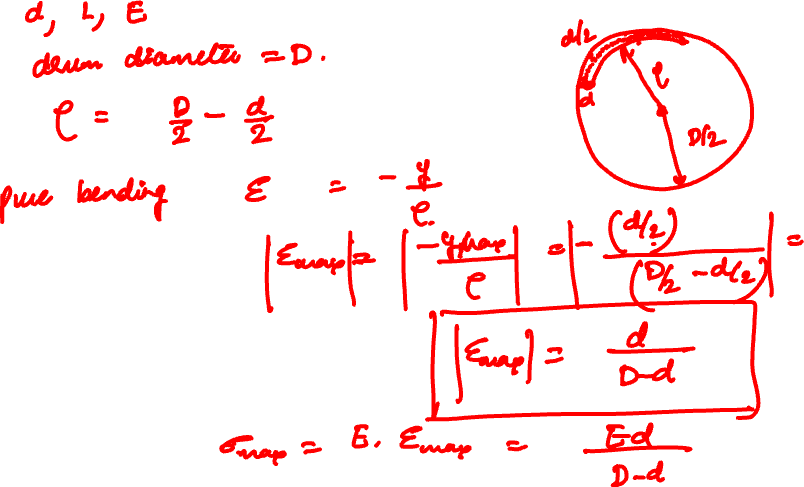 d, L, E
drum diameter = D.
ρ = D/2 - d/2
pure bending ε = - y/ρ.
|εmax| = |-ymax/ρ| = |-(d/2)/(D/2 - d/2)| =
|εmax| = d/(D-d)
σmax = E. εmax = Ed/(D-d)
d/2
d
ρ
D/2